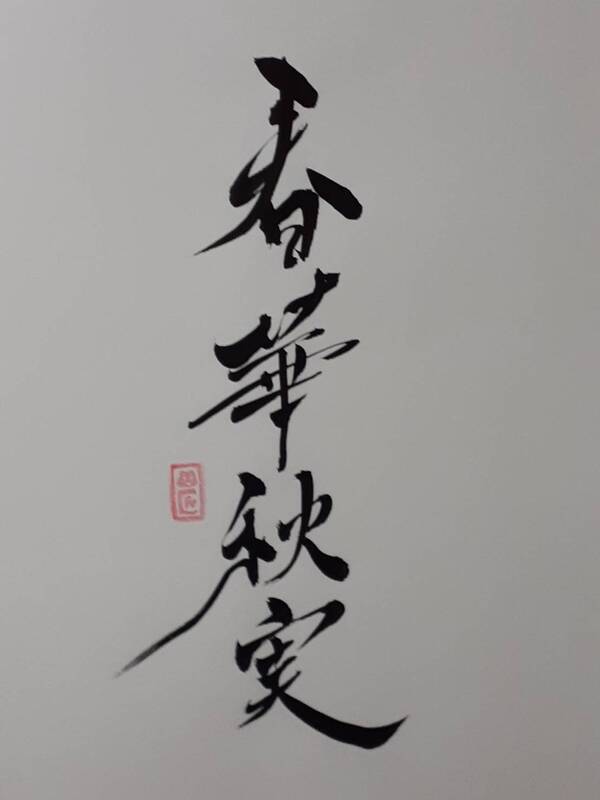 春華秋実